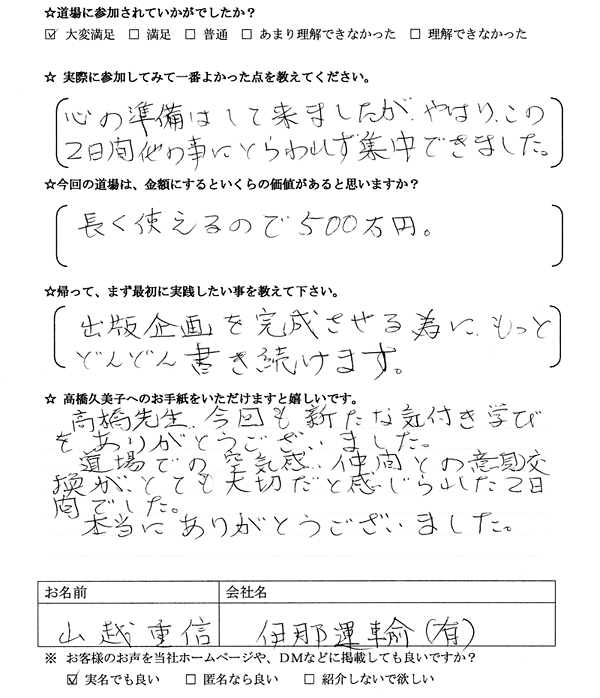 ☆道場に参加されていかがでしたか？
☑ 大変満足 □ 満足 □ 普通 □ あまり理解できなかった □ 理解できなかった
☆ 実際に参加してみて一番よかった点を教えてください。
心の準備はして来ましたが、やはり、この
2日間他の事にとらわれず集中できました。
☆今回の道場は、金額にするといくらの価値があると思いますか？
長く使えるので500万円。
☆帰って、まず最初に実践したい事を教えて下さい。
出版企画を完成させる為に、もっと
どんどん書き続けます。
☆ 高橋久美子へのお手紙をいただけますと嬉しいです。
高橋先生、今回も新たな気付き学び
をありがとうございました。
道場での空気感、仲間との意見交
換が、とても大切だと感じられた2日
間でした。
本当にありがとうございました。
お名前 会社名
山越重信 伊那運輸(有)
※ お客様のお声を当社ホームページや、DMなどに掲載しても良いですか？
☑ 実名でも良い □ 匿名なら良い □ 紹介しないで欲しい